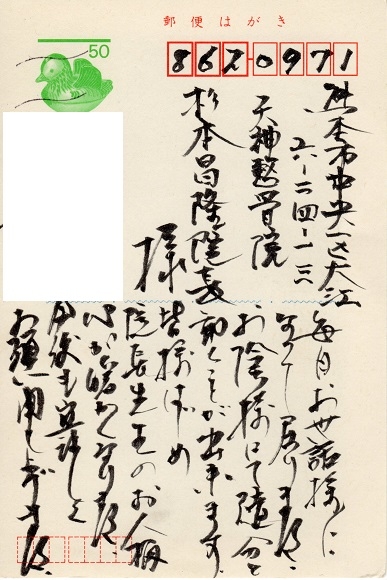 郵便はがき
50
862-0971
熊本市中央区大江
六-二四-一三
天神整骨院
杉本昌隆院長
様
毎日お世話様に
なって居ります。
お陰様にて随分と
動くことが出来ます。
皆様はじめ
院長先生のお人柄
心が癒されて
今後も宜しく
お願い申し上げます。